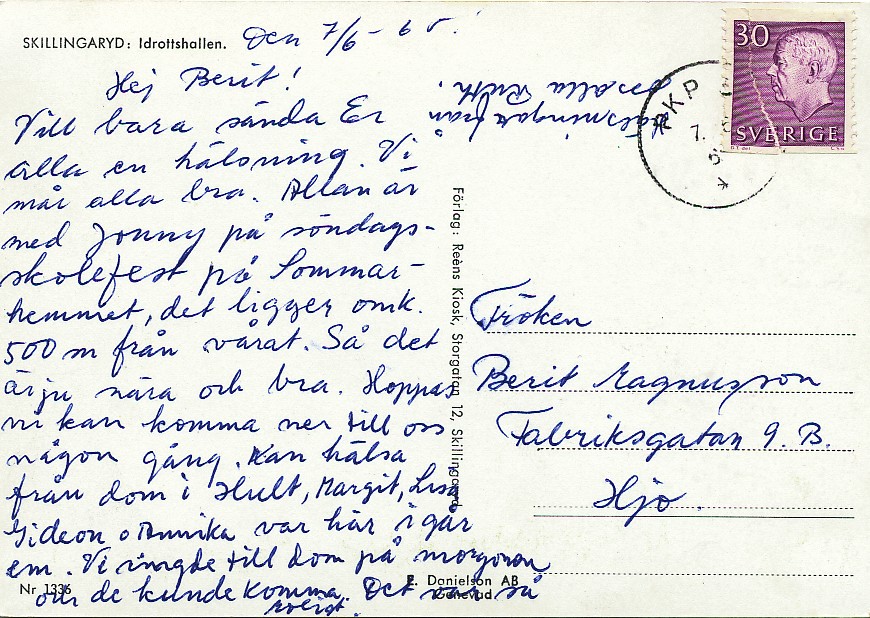 SKILLINGARYD: Idrottshallen.
Den 7/6 - 60
Hej Berit!
Vill bara sända Er
alla en hälsning. Vi
mår alla bra. Allan är
med Jonny på söndags-
skolefest på Sommar-
hemmet, det ligger omk.
500 m från vårat. Så det
är ju nära och bra. Hoppas
ni kan komma ner till oss
någon gång. Kan hälsa
från dom i Hult, Margit, Lisa
Gideon o Annika var här i går
em. Vi ringde till dom på morgonen
om de kunde komma. Det var så
roligt.
Hälsningar från
oss alla Ruth.
Nr 1336
Förlag: Reèns Kiosk, Storgatan 12, Skillingaryd
E. Danielson AB
Genevad
30
SVERIGE
PKP
7.
Fröken
Berit Magnusson
Fabriksgatan 9. B.
Hjo.